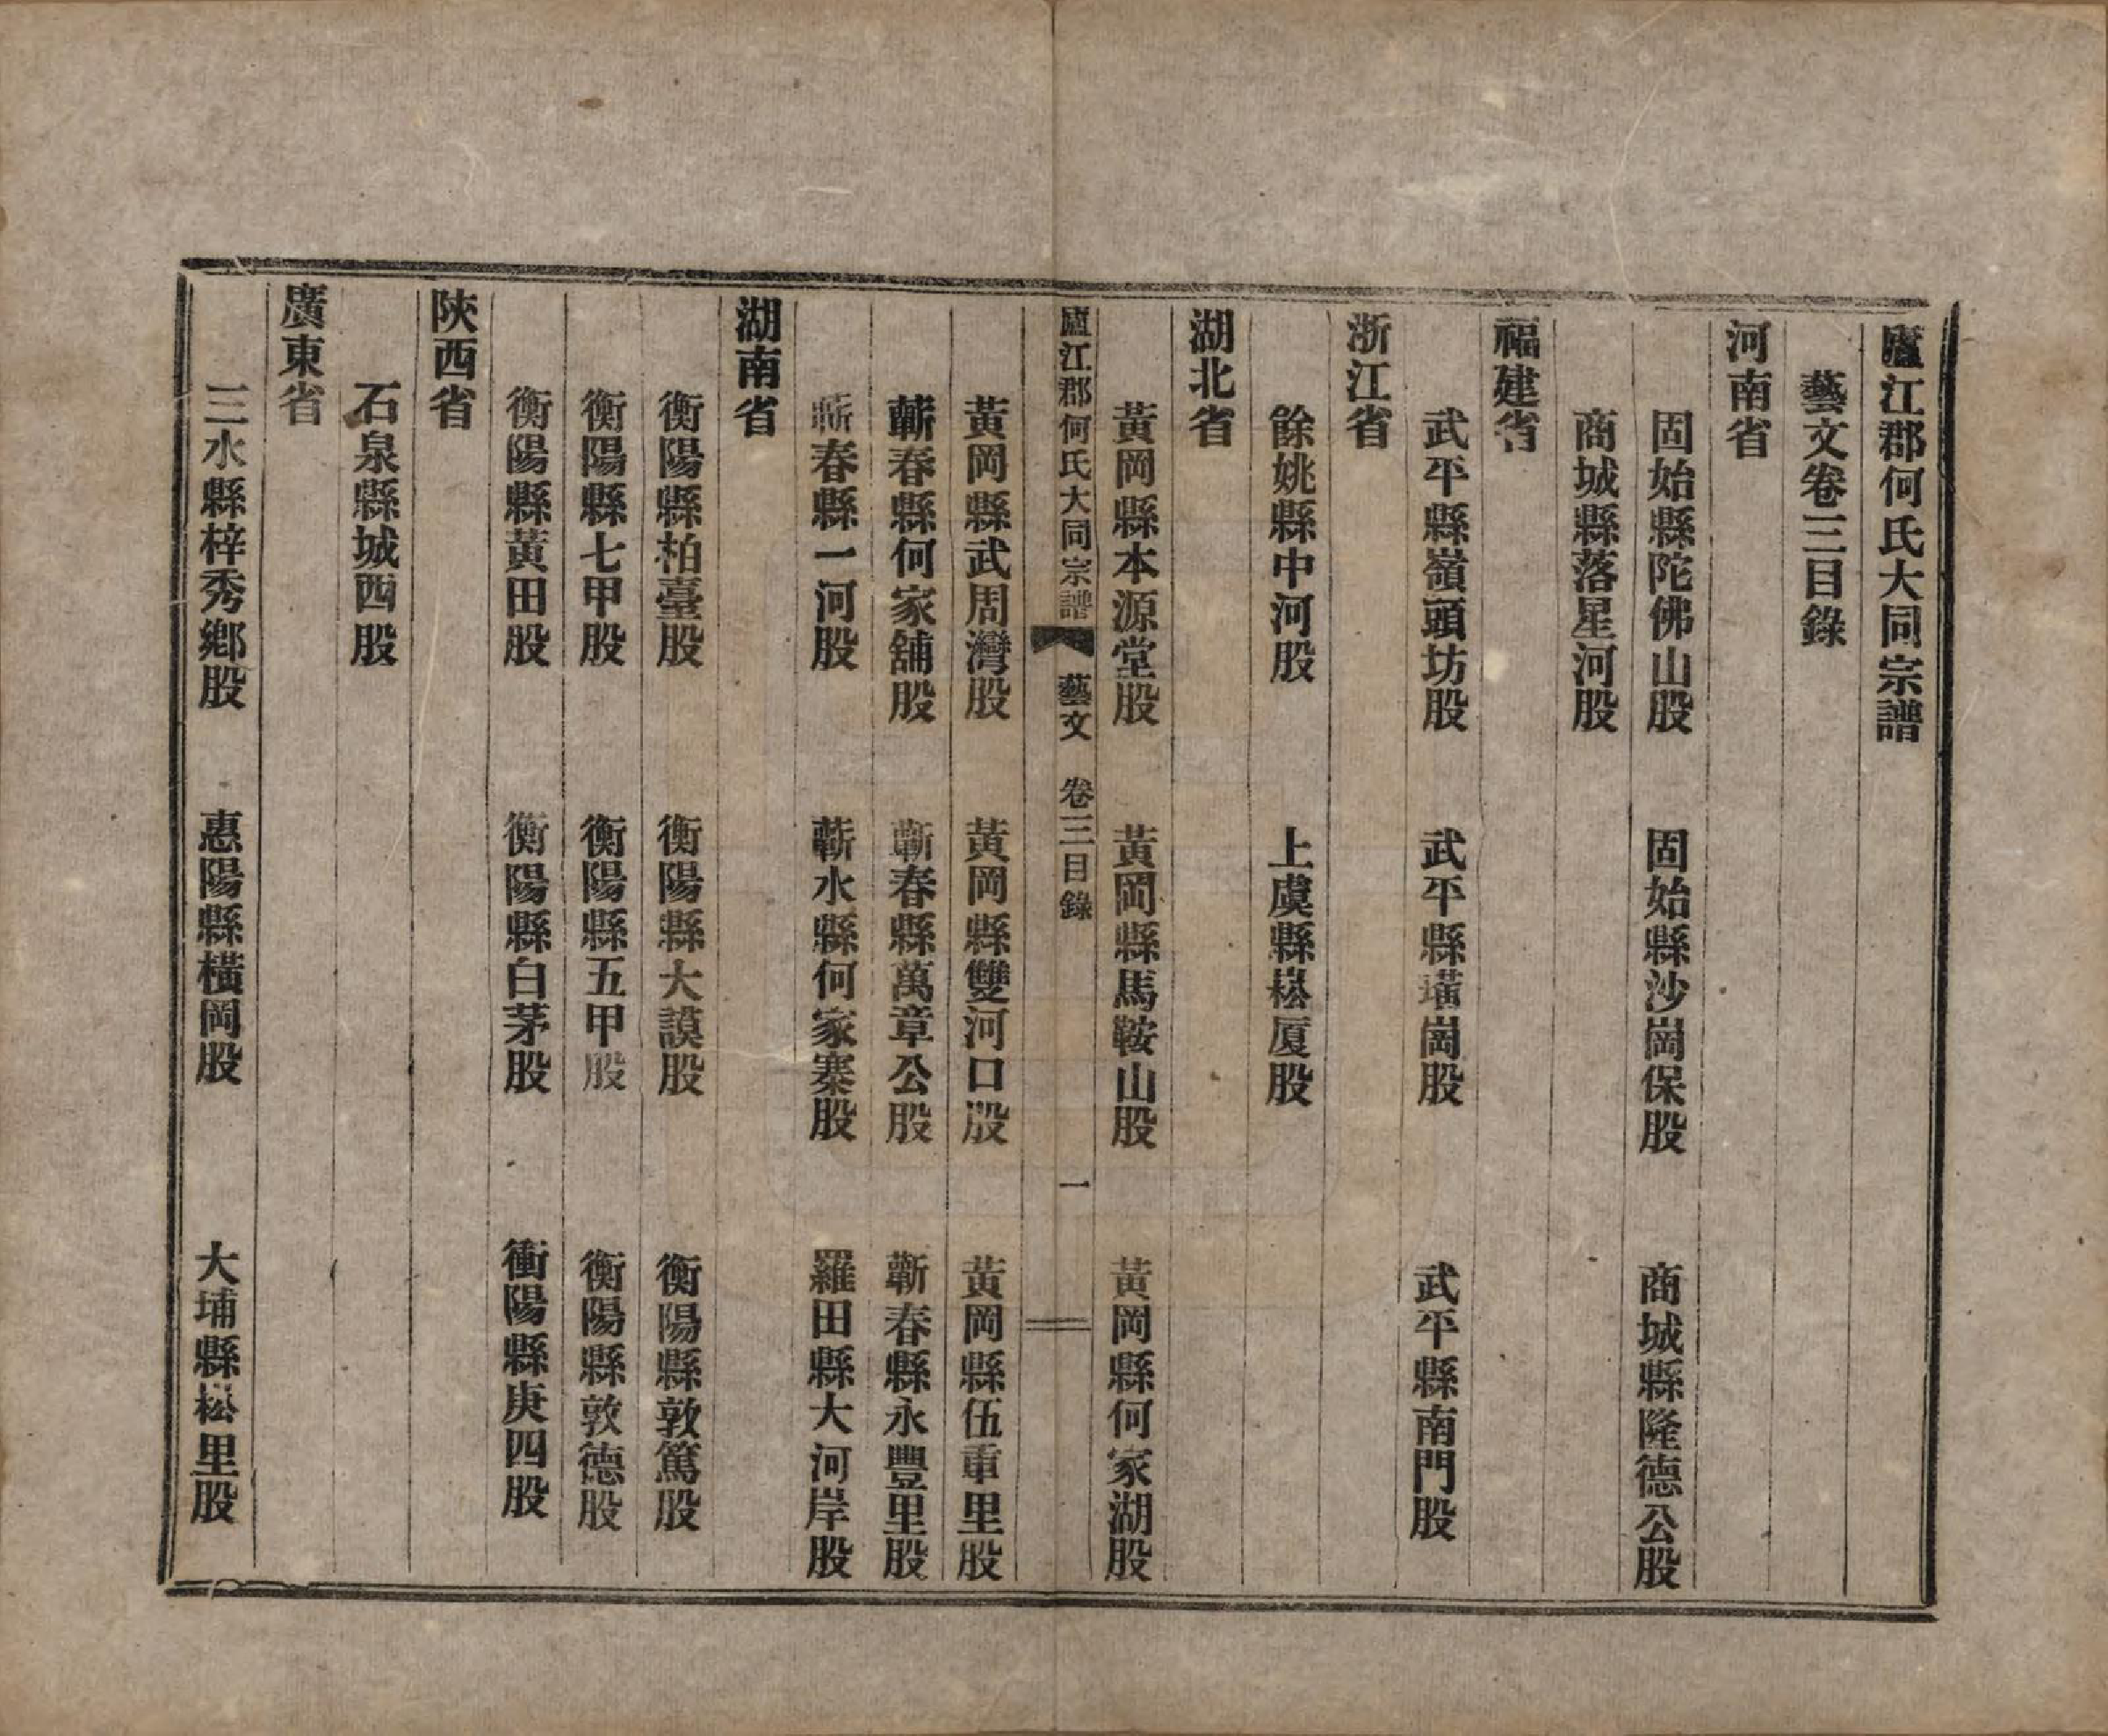 廬江郡何氏大同宗譜
藝文卷三目錄
河南省
固始縣陀佛山股　固始縣沙崗保股　商城縣隆德公股
商城縣落星河股
福建省
武平縣嶺頭坊股　武平縣璜崗股　武平縣南門股
浙江省
餘姚縣中河股　上虞縣崧厦股
湖北省
黃岡縣本源堂股　黃岡縣馬鞍山股　黃岡縣何家湖股
廬江郡何氏大同宗譜　藝文　卷三目錄　一
黃岡縣武周灣股　黃岡縣雙河口股　黃岡縣伍重里股
蘄春縣何家舖股　蘄春縣萬章公股　蘄春縣永豐里股
蘄春縣一河股　蘄水縣何家寨股　羅田縣大河岸股
湖南省
衡陽縣柏臺股　衡陽縣大謨股　衡陽縣敦篤股
衡陽縣七甲股　衡陽縣五甲股　衡陽縣敦德股
衡陽縣黃田股　衡陽縣白茅股　衝陽縣庚四股
陝西省
石泉縣城西股
廣東省
三水縣梓秀鄉股　惠陽縣橫岡股　大埔縣崧里股